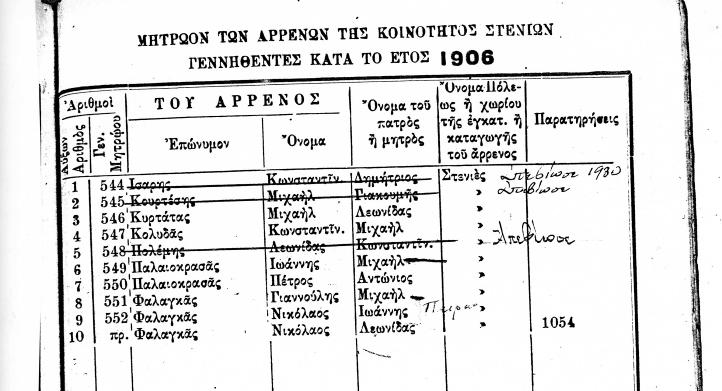 ΜΗΤΡΩΟΝ ΤΩΝ ΑΡΡΕΝΩΝ ΤΗΣ ΚΟΙΝΟΤΗΤΟΣ ΣΤΕΝΙΩΝ
ΓΕΝΝΗΘΕΝΤΕΣ ΚΑΤΑ ΤΟ ΕΤΟΣ 1906
Ἀριθμοὶ ΤΟΥ ΑΡΡΕΝΟΣ Ὄνομα τοῦ πατρὸς ἢ μητρὸς Ὄνομα Πόλεως ἢ χωρίου τῆς ἐγκατ. ἢ καταγωγῆς τοῦ ἄρρενος Παρατηρήσεις
Αὔξων Ἀριθμὸς Γεν. Μητρῴου Ἐπώνυμον Ὄνομα
1 544 Ισαρης Κωνσταντῖν. Δημήτριος Στενιὲς Ἀπεβίωσε 1930
2 545 Κουρτέσης Μιχαὴλ Γιακουμῆς » Ἀπεβίωσε
3 546 Κυρτάτας Μιχαὴλ Λεωνίδας »
4 547 Κολυδᾶς Κωνσταντῖν. Μιχαὴλ »
5 548 Πολέμης Λεωνίδας Κωνσταντῖν. » Ἀπεβίωσε
6 549 Παλαιοκρασᾶς Ἰωάννης Μιχαὴλ »
7 550 Παλαιοκρασᾶς Πέτρος Ἀντώνιος »
8 551 Φαλαγκᾶς Γιαννούλης Μιχαὴλ »
9 552 Φαλαγκᾶς Νικόλαος Ἰωάννης »
10 πρ. Φαλαγκᾶς Νικόλαος Λεωνίδας » 1054